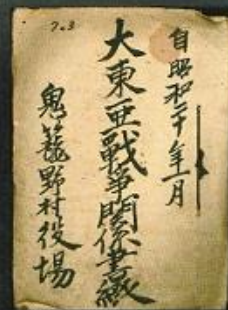 7.3
自昭和二十年一月
大東亜戦争関係書綴
鬼籠野村役場